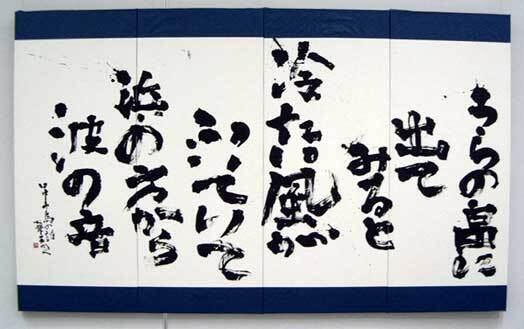 うらの畠に
出て
みると
冷たい風が
ふいていて
浜の方から
波の音